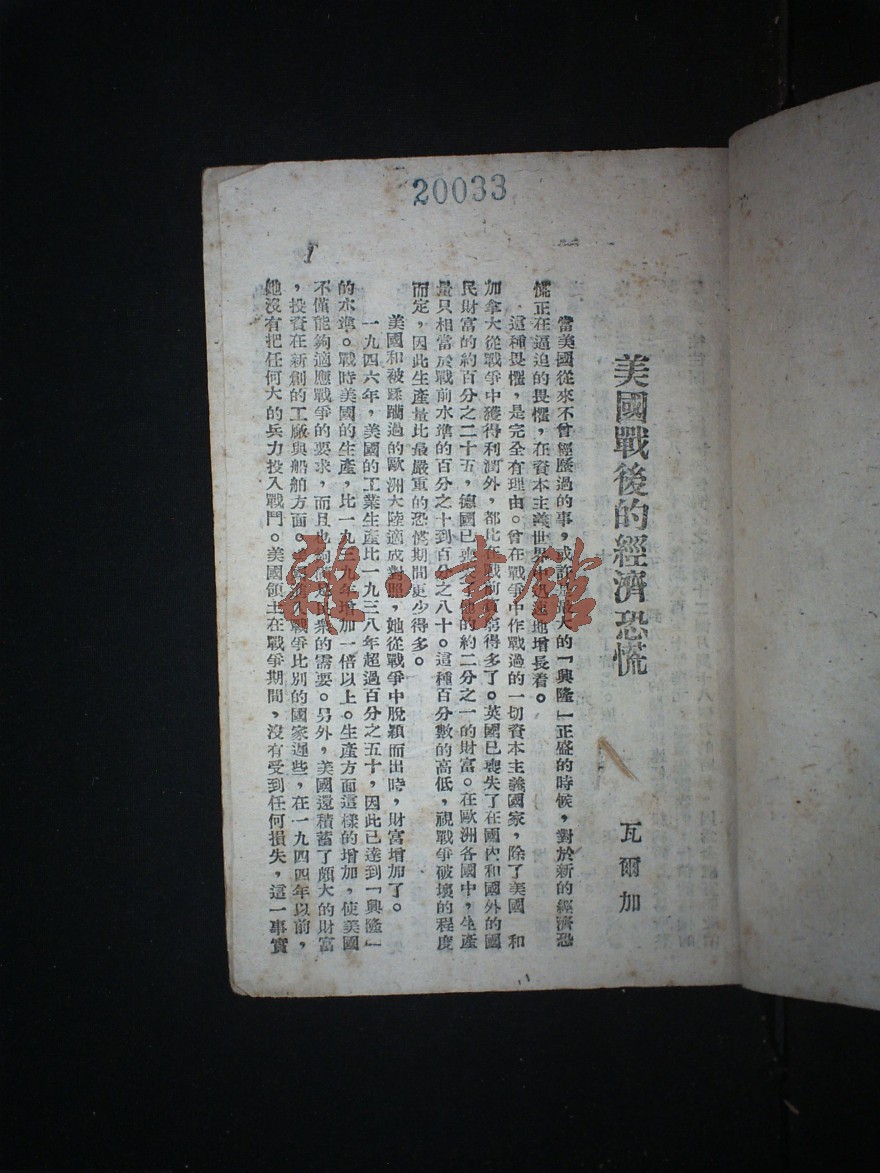 20033
美國戰後的經濟恐慌
瓦爾加
一
當美國從來不曾經歷過的事，或許最大的「興隆」正盛的時候，對於新的經濟恐
慌正在逼迫的畏懼，在資本主義世界中迅速地增長着。
這種畏懼，是完全有理由。曾在戰爭中作戰過的一切資本主義國家，除了美國和
加拿大從戰爭中獲得利潤外，都比在戰前貧窮得多了。英國已喪失了在國內和國外的國
民財富的約百分之二十五，德國已喪失其他的約二分之一的財富。在歐洲各國中，生產
量只相當於戰前水準的百分之十到百分之八十。這種百分數的高低，視戰爭破壞的程度
而定，因此生產量比最嚴重的恐慌期間更少得多。
美國和被蹂躪過的歐洲大陸適成對照，她從戰爭中脫穎而出時，財富增加了。
一九四六年，美國的工業生產比一九三八年超過百分之五十，因此已達到「興隆」
的水準。戰時美國的生產，比一九三九年增加一倍以上。生產方面這樣的增加，使美國
不僅能夠適應戰爭的要求，而且也夠滿足民衆的需要。另外，美國還積蓄了頗大的財富
，投資在新創的工廠與船舶方面。美國進入戰爭比別的國家遲些，在一九四四年以前，
她沒有把任何大的兵力投入戰鬥。美國領土在戰爭期間，沒有受到任何損失，這一事實
1
雜·書館